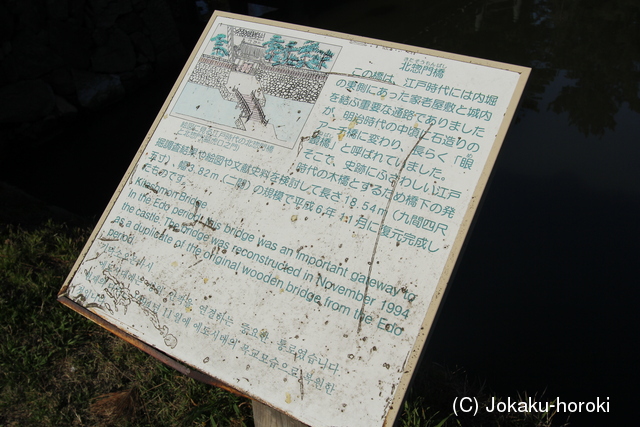 北惣門橋
この橋は、江戸時代には内堀
の東側にあった家老屋敷と城内
を結ぶ重要な通路でありました
が、明治時代の中頃に石造りの
アーチ橋に変わり、長らく「眼
鏡橋」と呼ばれていました。
そこで、史跡にふさわしい江戸
時代の木橋とするため橋下の発
掘調査結果や絵図や文献史料を検討して長さ18.54m（九間四尺
五寸）、幅3.82m（二間）の規模で平成6年11月に復元完成し
たものです。
Kitasomon Bridge
In the Edo period this bridge was an important gateway to
the castle. The bridge was reconstructed in November 1994
as a duplicate of the original wooden bridge from the Edo
period.
연결하는 중요한 통로였습니다
11월에 에도시대의 목교모습으로 복원한
(C) Jokaku-horoki